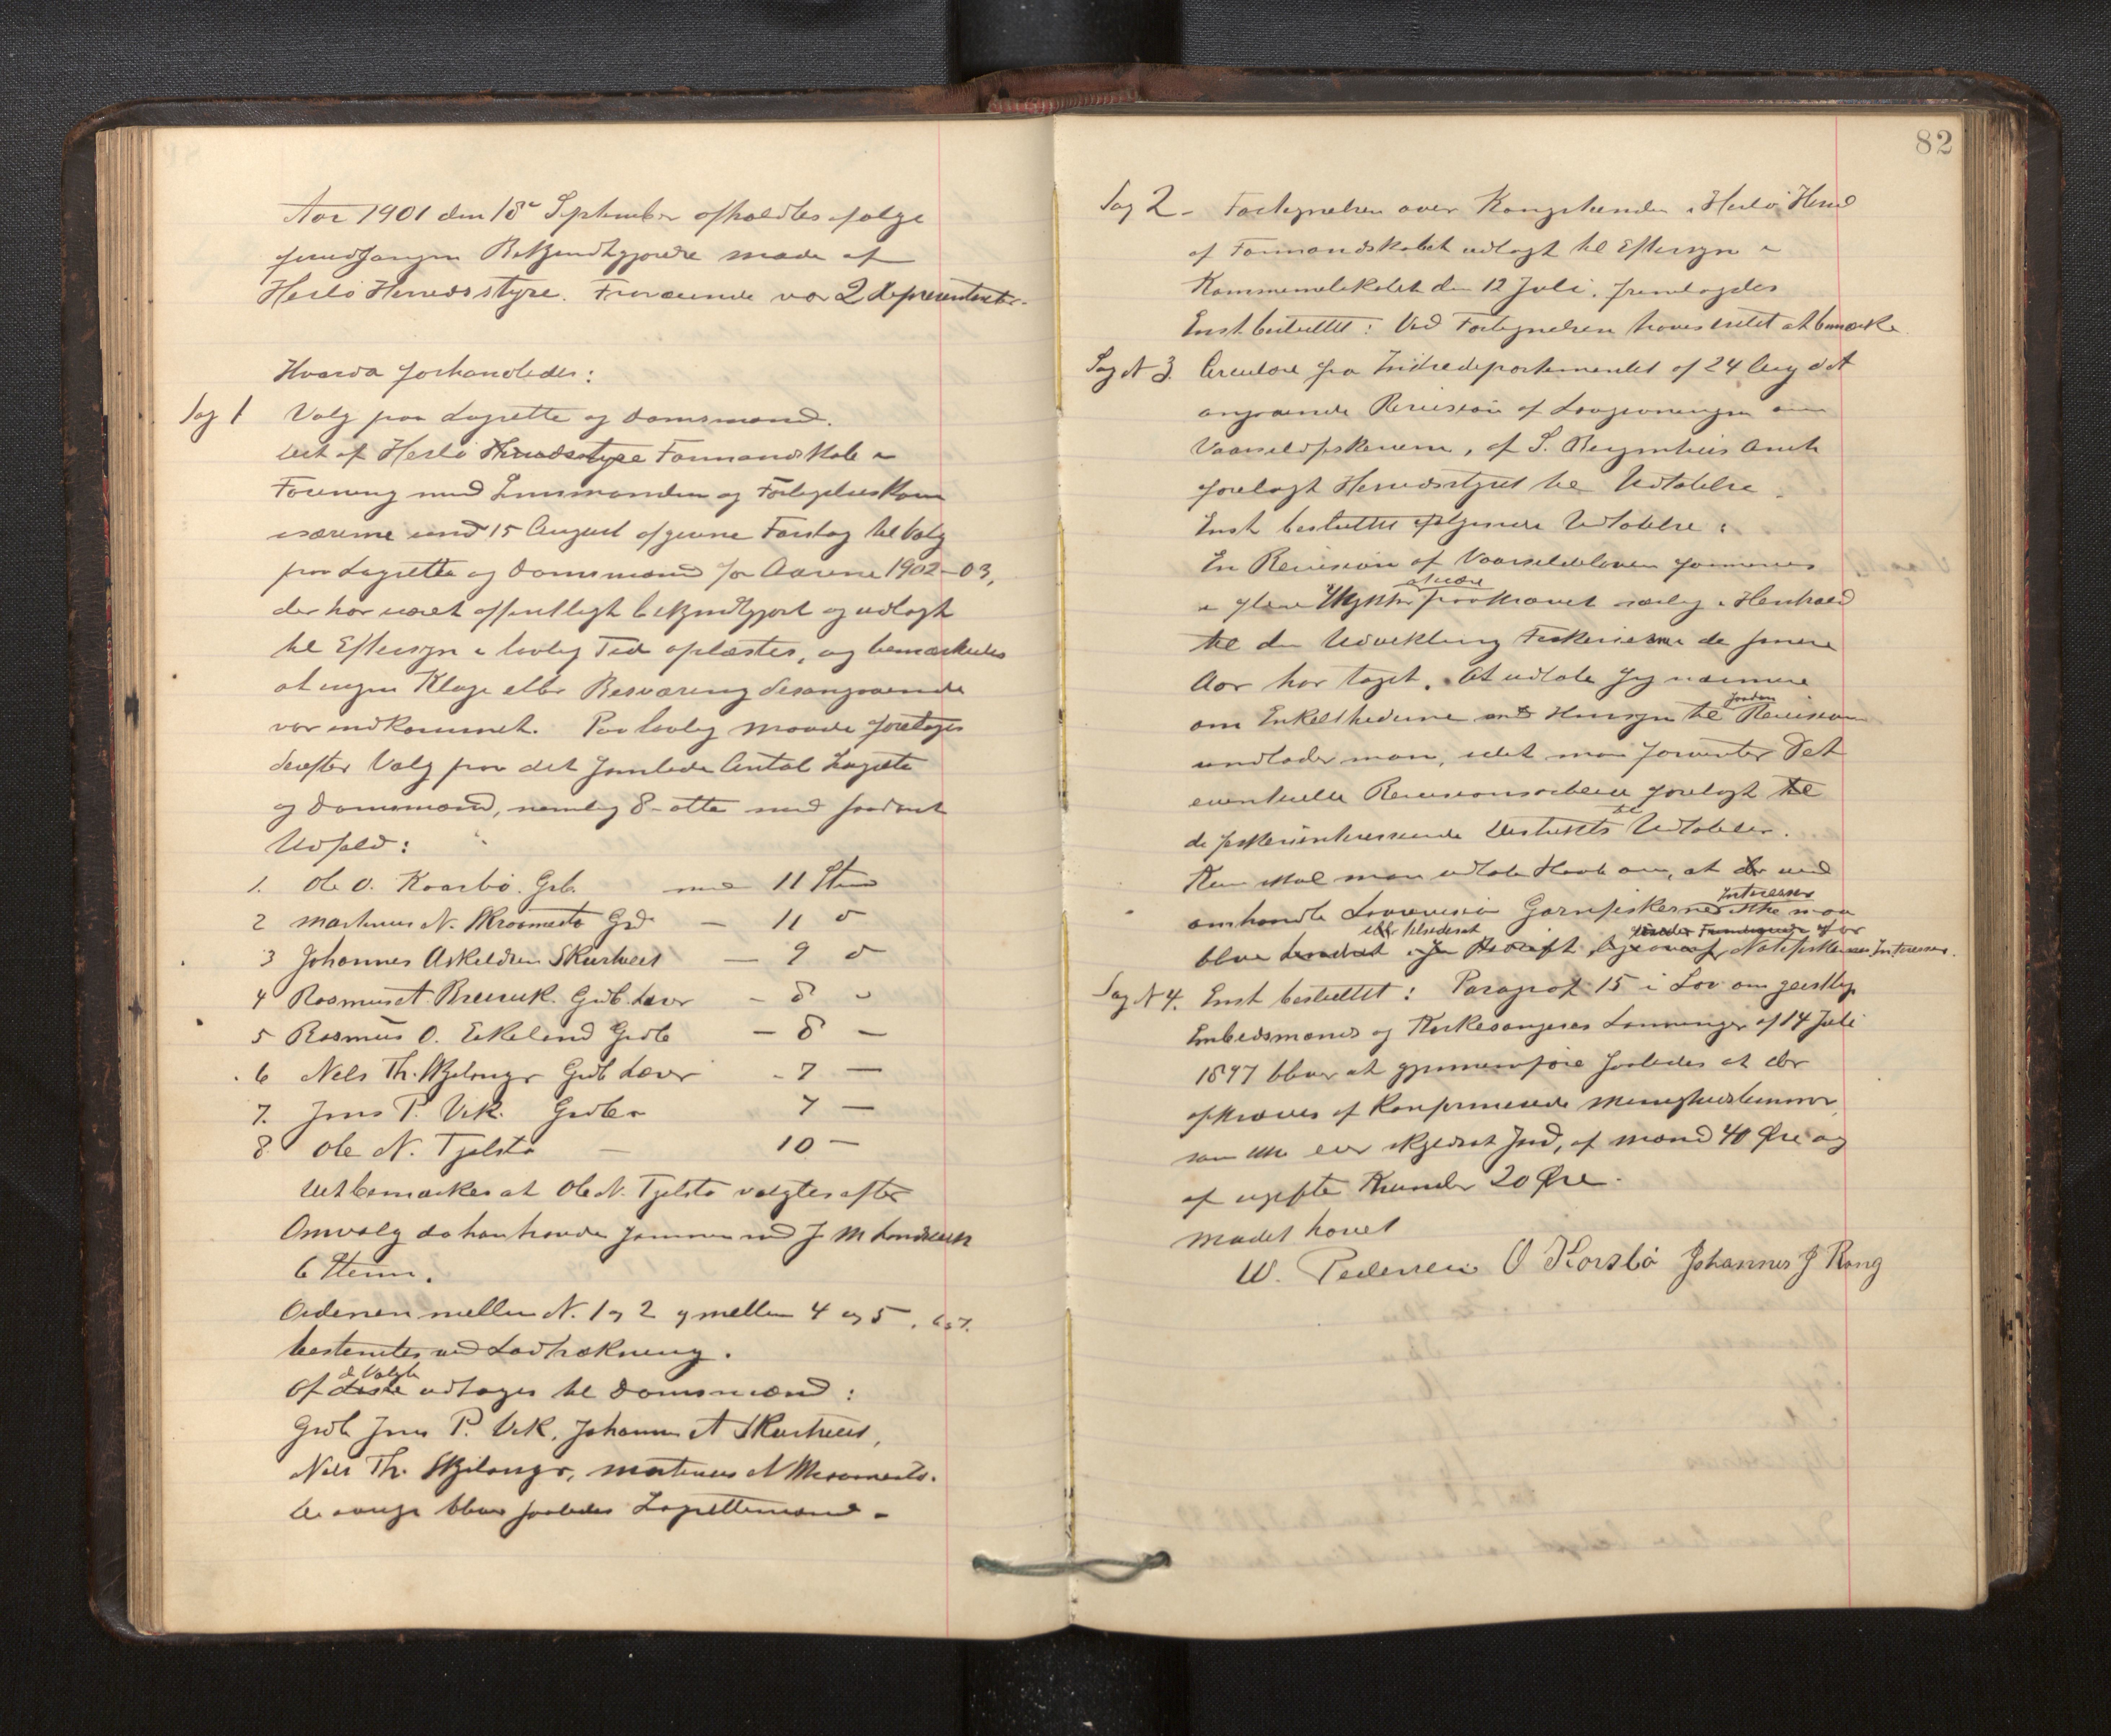 82
Aar 1901 den 18de September afholdtes ifølge
forudgangen Bekjendtgjørelse møde af
Herlø Herredsstyre. Fraværende var 2 Repræsentanter.
Hvorda forhandledes:
Sag 1 Valg paa Lagrette og Domsmænd.
Det af Herlø Herredsstyre Formandskab i
Forening med Lensmanden og Forligelseskom
isærerne under 15 August afgivne Forslag til Valg
paa Lagrette og Domsmænd for Aarene 1902-03,
der har været offentligt bekjendtgjort og udlagt
til Eftersyn i lovlig Tid oplæstes, og bemærkedes
at ingen Klage eller Besværing desangaaende
var indkommet. Paa lovlig Maade foretoges
derefter Valg paa det samlede Antal Lagrette
og Domsmænd, nemlig 8-otte med saadant
Udfald:
1. Ole O. Kaarbø. Grb. med 11 Stem
2 Martinus N. Skraamestø Grd - 11 o
3 Johannes Askeldsen Skurtveit - 9 o
4 Rasmus A. Breivik. Grdb. Læver - 8 "
5 Rasmus O. Eikeland Grdb - 8 -
6 Nels Th. Skjelanger Grdb Læver - 7 -
7. Jens P. Vik. Grdbr 7 -
8 Ole N. Tjeldstø - 10 -
Det bemærkes at Ole N. Tjeldstø valgtes efter
Omvalg da han havde sammen med J M Landsvik
6 Stem.
Ordenen mellem N. 1 og 2 og mellem 4 og 5, 6 og 7.
bestemtes ved Lodtrækning.
de Valgte
Af disse udtoges til Domsmænd:
Grdb Jens P. Vik, Johannes A Skurtveit,
Nils Th. Skjelanger, Martinus N Skraamestø.
De øvrige bliver saaledes Lagrettemænd.
Sag 2 - Fortegnelsen over Kongstiender i Herlø Herred
af Formandskabet udlagt til Eftersyn i
Kommunelokalet den 12 Juli, fremlagdes
Enst besluttet: Ved Fortegnelsen haves intet at bemærke.
Sag N 3. Circulære fra Indredepartementet af 24 Aug d A
angaaende Revision af Lovgivningen om
Vaarsildfiskerierne, af S. Bergenhus Amt
forelagt Herredsstyret til Udtalelse.
Enst besluttet følgende Udtalelse:
En Revision af Vaarsildloven formenes
at være
i flere Stykker paakrævet særlig i Henhold
til den Udvikling Fiskerierne de senere
Aar har taget. At udtale sig nærmere
saadan
om Enkelthederne med Hensyn til Revision
undlader man, idet man forventer Det
eventuelle Revisionsarbeide forelagt til
til
de fiskeriinteresserede Distrikts Udtalelse.
Kun skal man udtale Haab om, at der ved
Interesser
omhandlede Lovrevision Garnfiskernes ikke maa
eller tilsidesat
blive Notefiskernes Interesser.
Sag N 4. Enst besluttet: Paragraf 15 i Lov om geistlige
Embedsmænds og Kirkesangeres Lønninger af 14 Juli
1897 bliver at gjennemføre saaledes at der
opkræves af konfirmerede Menighedslemmer,
som ikke eier skyldsat Jord, af Mænd 40 Øre og
af ugifte Kvinder 20 Øre.
Mødet hævet
W. Pedersen O Korsbø Johannes J Rong